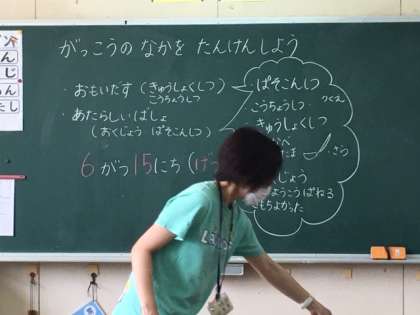 がっこうの なかを たんけんしよう
・おもいだす（きゅうしょくしつ
こうちょうしつ
・あたらしいばしょ
（おくじょう ぱそこんしつ）
6がつ15にち（げつ
ぱそこんしつ
こうちょうしつ
・つくえ
きゅうしょくしつ
・ざる
じょう
ようこうぱねる
きもちよかった